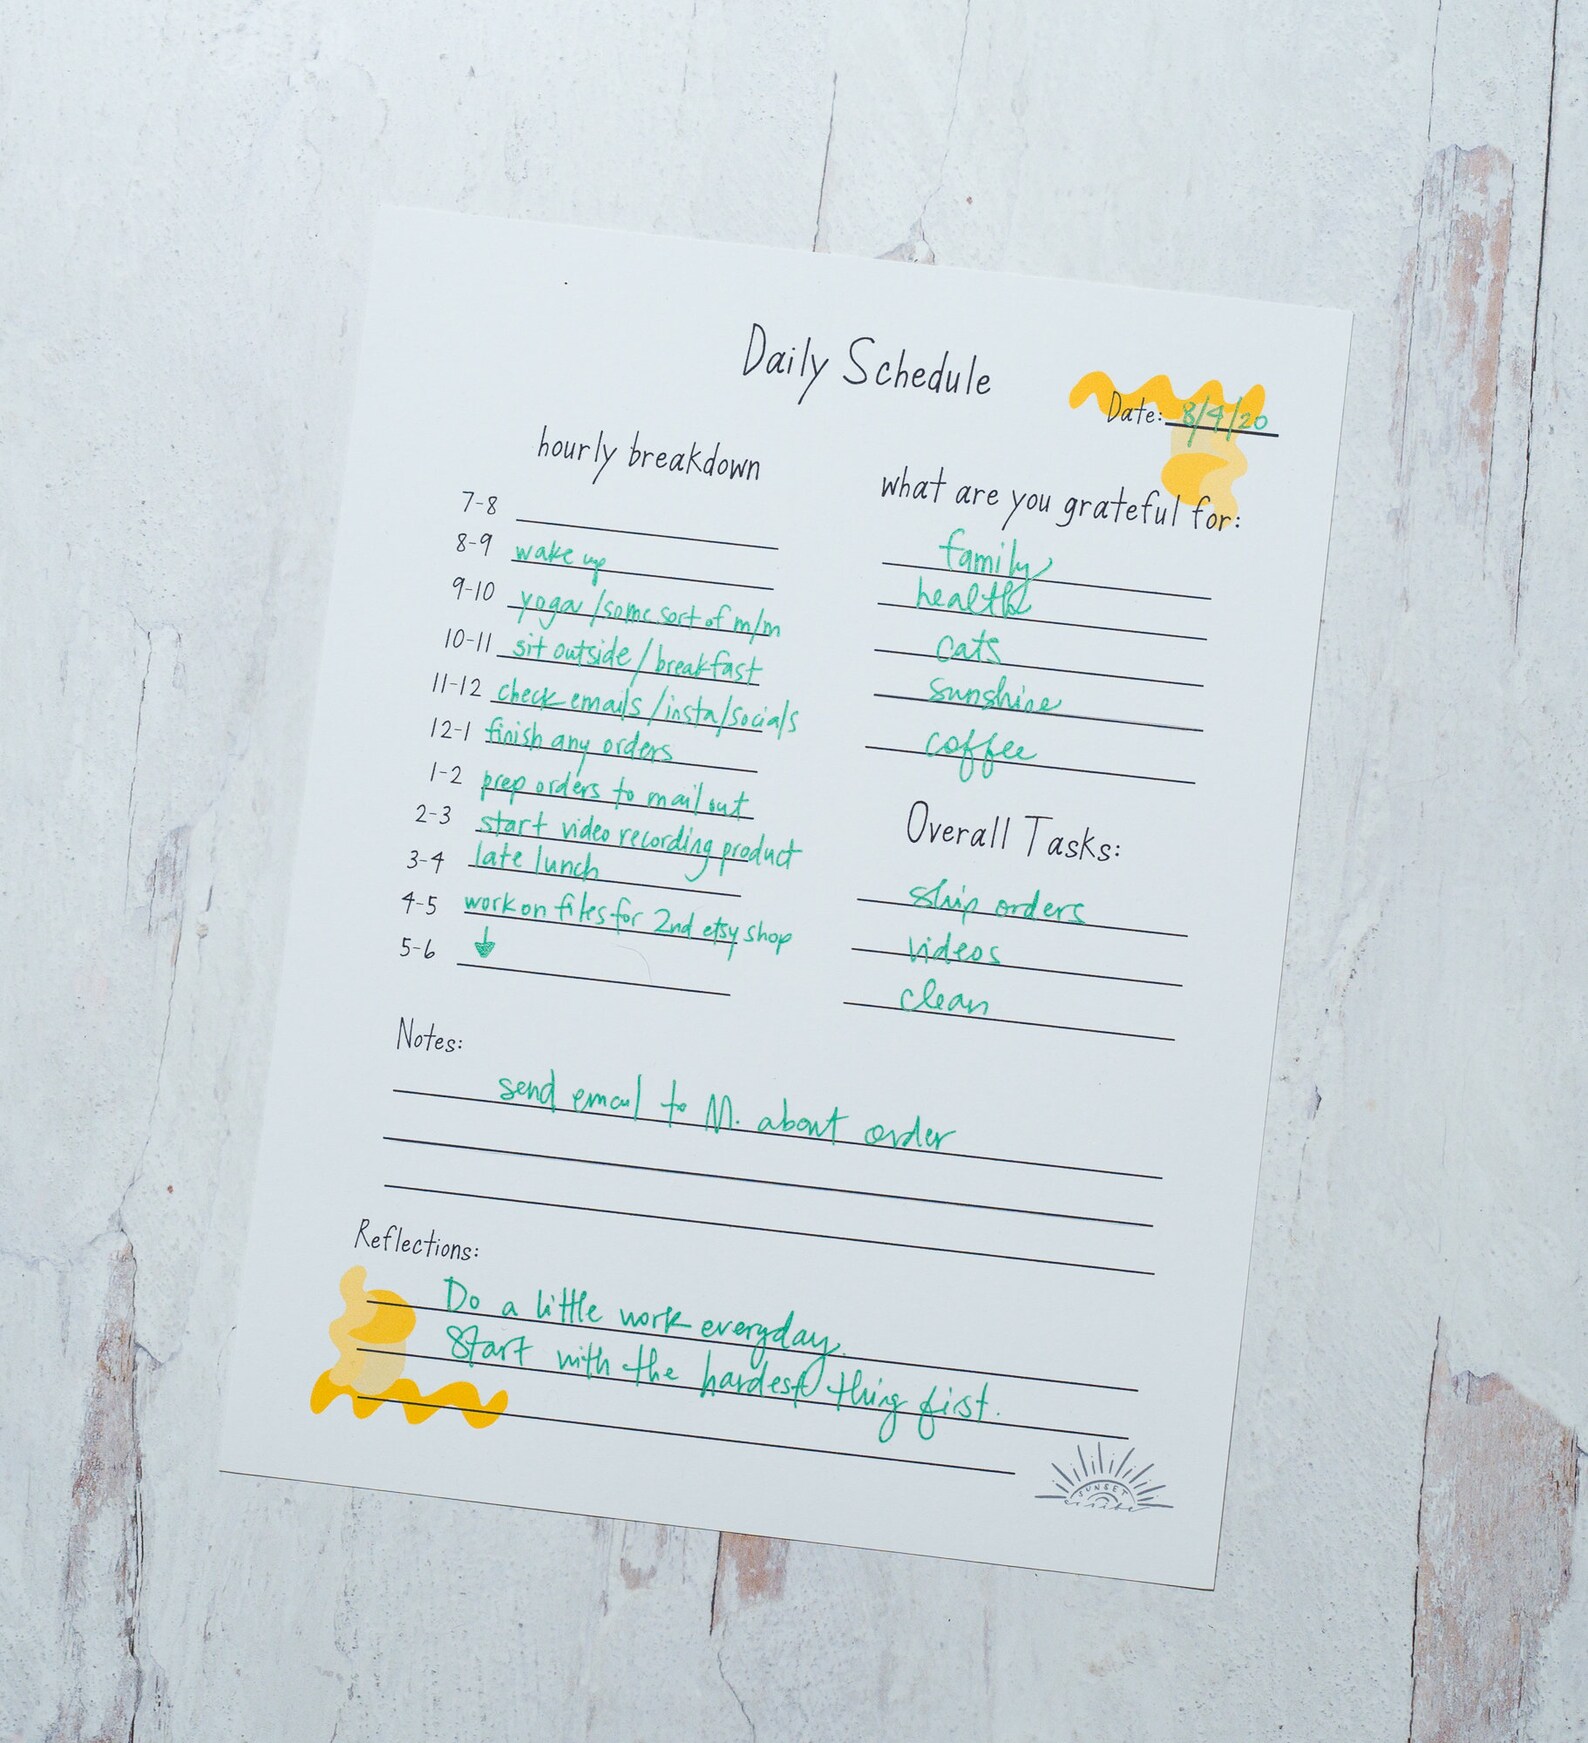 Daily Schedule
Date: 8/4/20
hourly breakdown
7-8
8-9 wake up
9-10 yoga/some sort of m/m
10-11 sit outside/breakfast
11-12 check emails/insta/socials
12-1 finish any orders
1-2 prep orders to mail out
2-3 start video recording product
3-4 late lunch
4-5 work on files for 2nd etsy shop
5-6
what are you grateful for:
family
health
cats
sunshine
coffee
Overall Tasks:
ship orders
videos
clean
Notes:
send email to M. about order
Reflections:
Do a little work everyday.
Start with the hardest thing first.
SUNSET